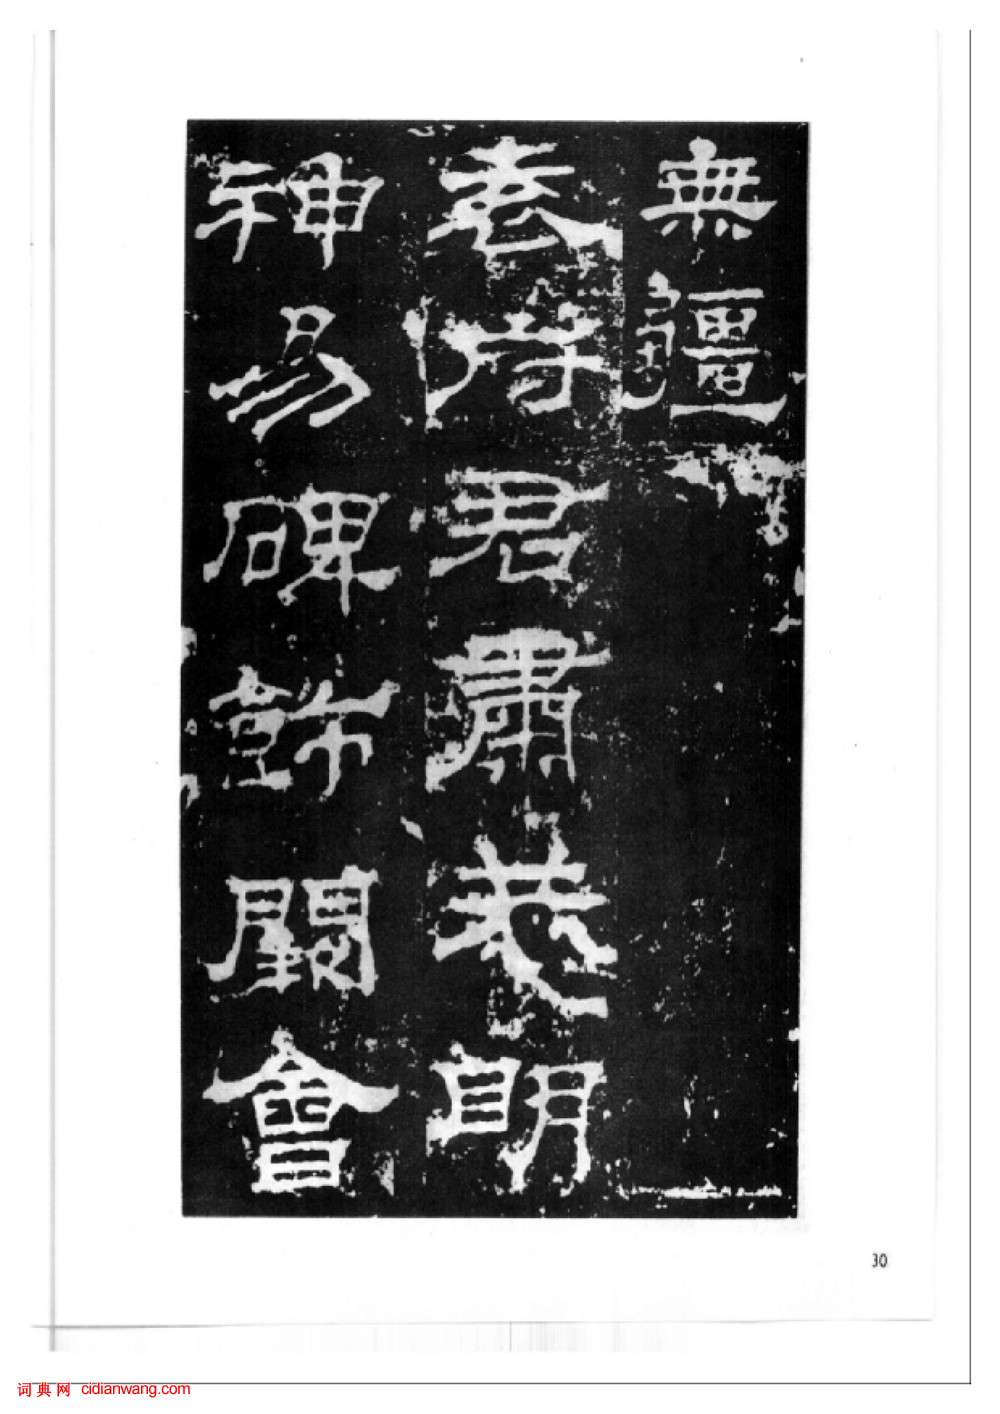 無疆
袁府君肅恭明
神易碑飾闕會
30
词典网 cidianwang.com